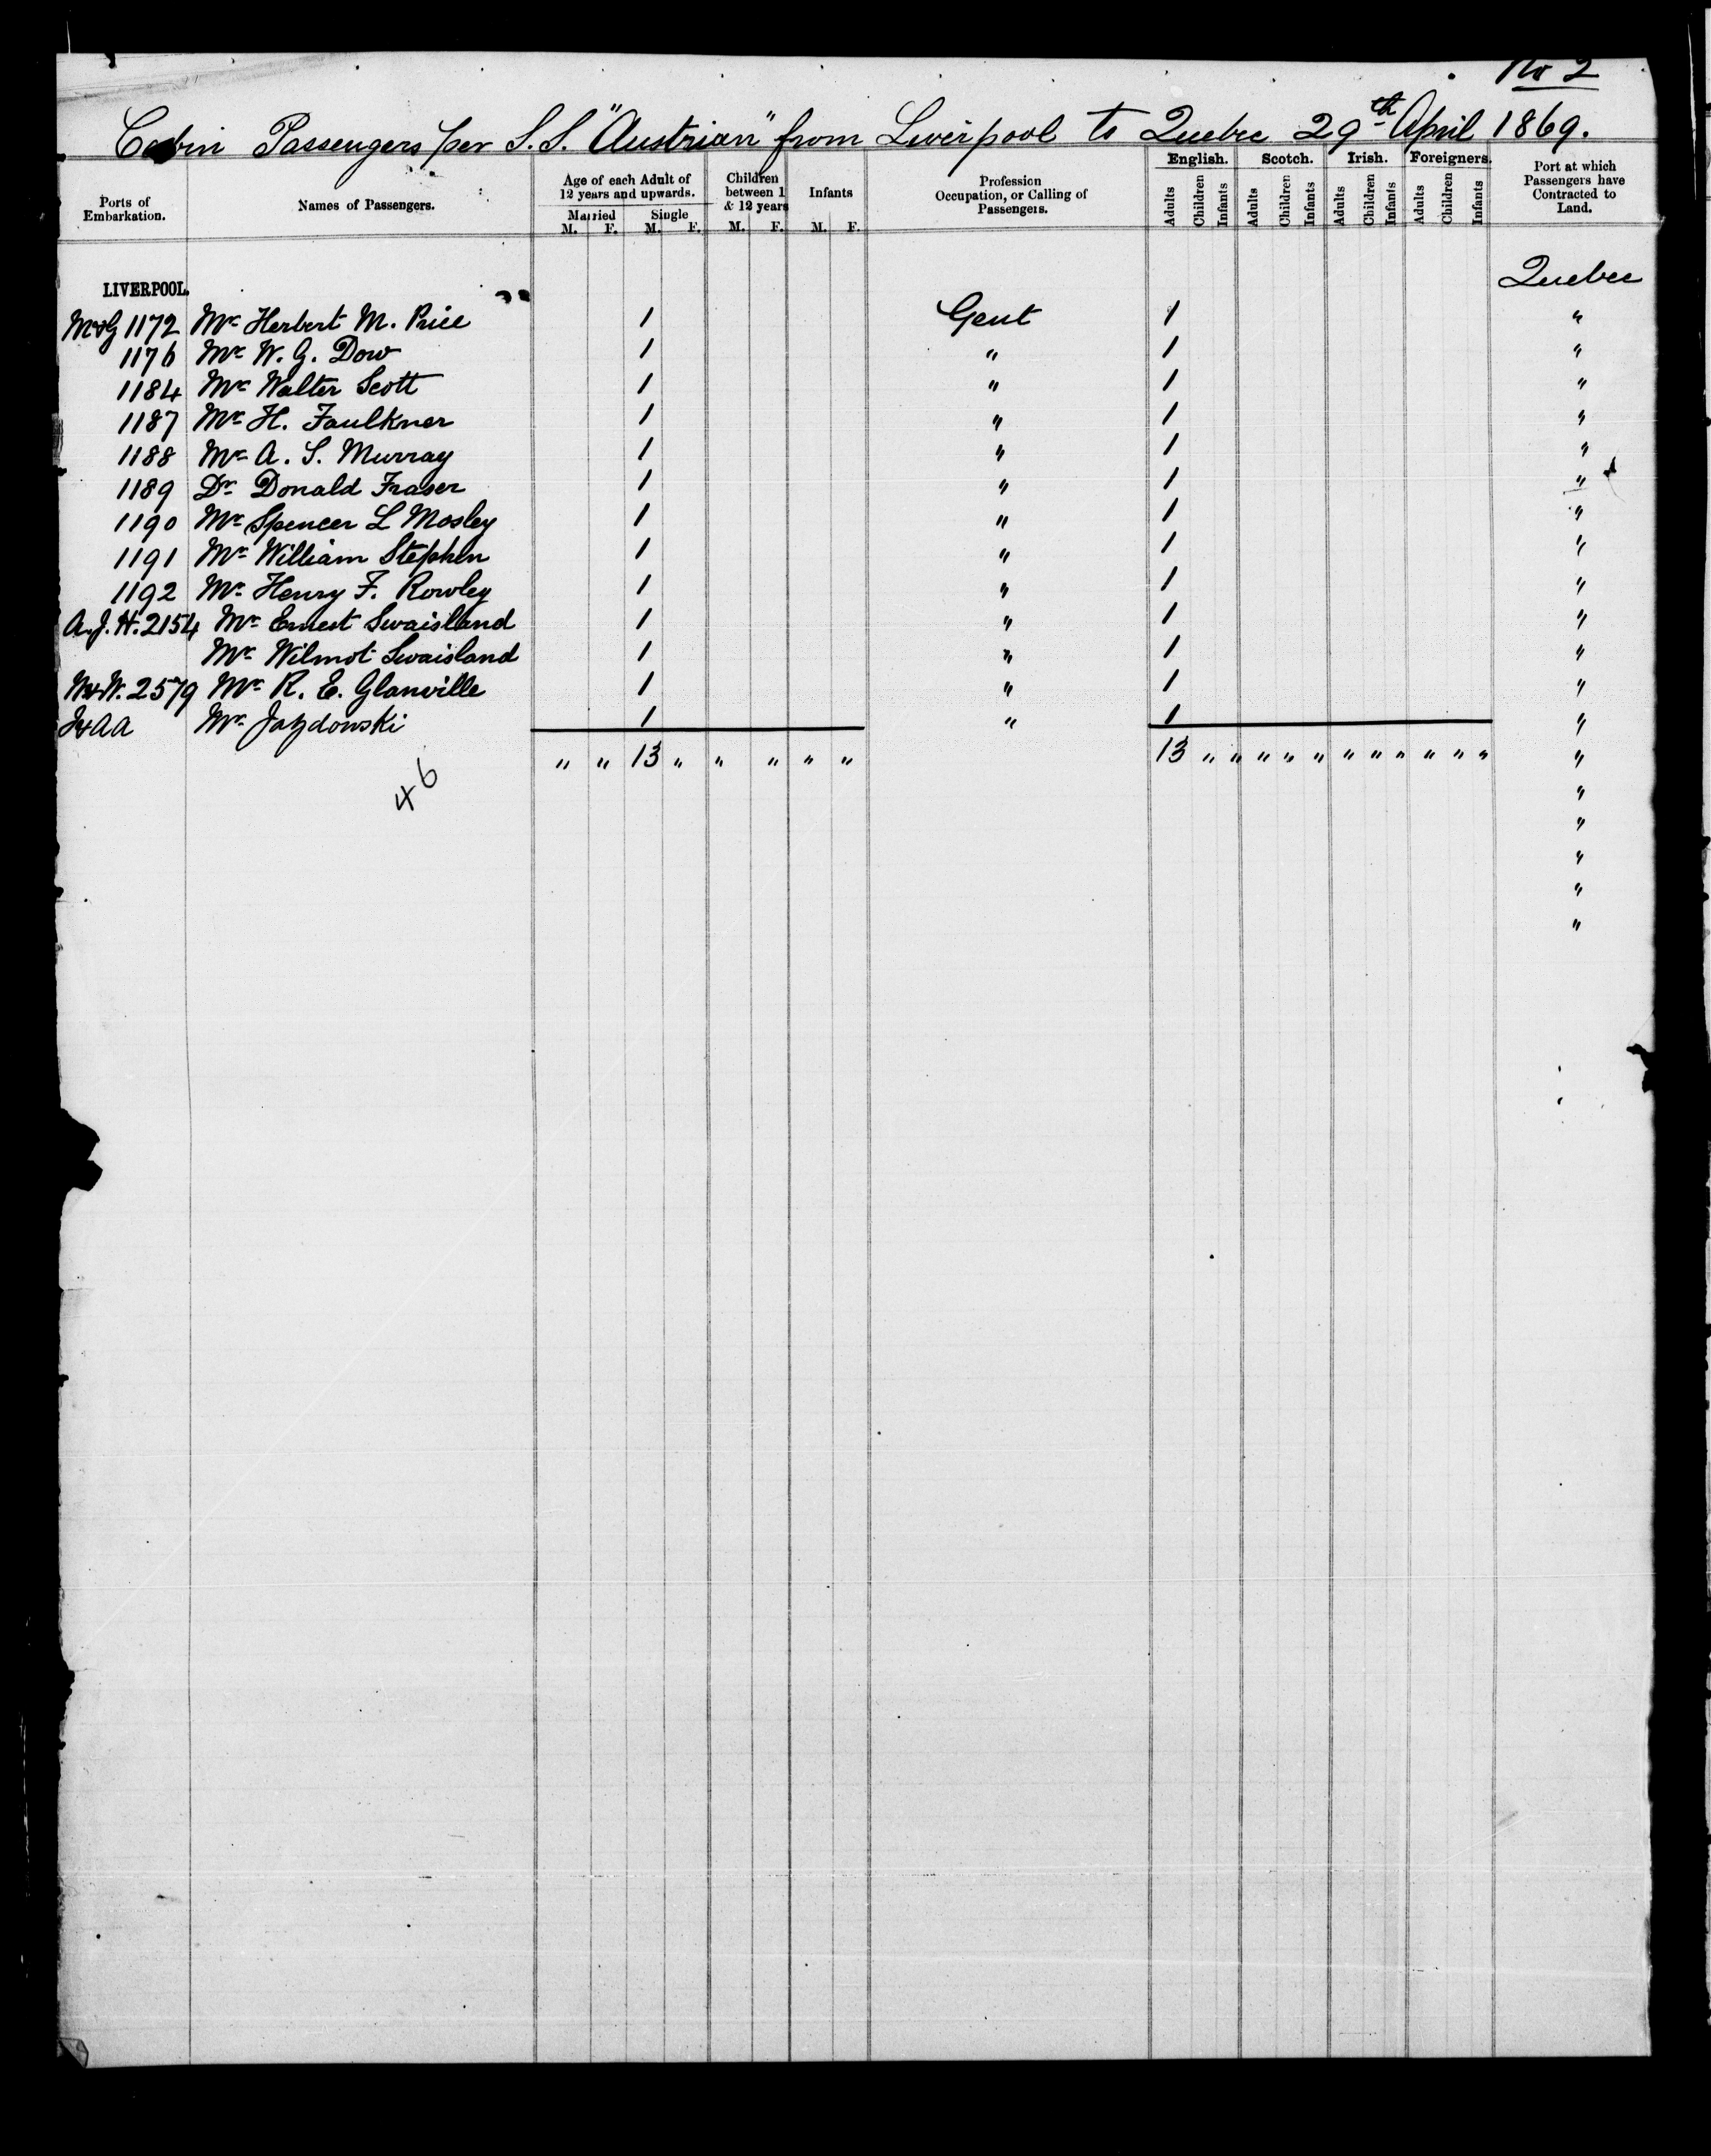 No 2
Cabin Passengers per S.S. "Austrian" from Liverpool to Quebec 29th April 1869.
Ports of Embarkation. Names of Passengers. Age of each Adult of 12 years and upwards. Children between 1 & 12 years Infants Profession Occupation, or Calling of Passengers. English. Scotch. Irish. Foreigners. Port at which Passengers have Contracted to Land.
Married Single
M. F. M. F. M. F. M. F. Adults Children Infants Adults Children Infants Adults Children Infants Adults Children Infants
LIVERPOOL. Quebec
M&G 1172 Mr Herbert M. Price 1 Gent 1 "
1176 Mr W. G. Dow 1 " 1 "
1184 Mr Walter Scott 1 " 1 "
1187 Mr H. Faulkner 1 " 1 "
1188 Mr A. S. Murray 1 " 1 "
1189 Dr Donald Fraser 1 " 1 "
1190 Mr Spencer L Mosley 1 " 1 "
1191 Mr William Stephen 1 " 1 "
1192 Mr Henry F. Rowley 1 " 1 "
A.J.H. 2154 Mr Ernest Swaisland 1 " 1 "
Mr Wilmot Swaisland 1 " 1 "
W&W. 2579 Mr R. E. Glanville 1 " 1 "
J&AA Mr Jazdowski 1 " 1 "
" " 13 " " " " " 13 " " " " " " " " " " " "
46 "
"
"
"
"